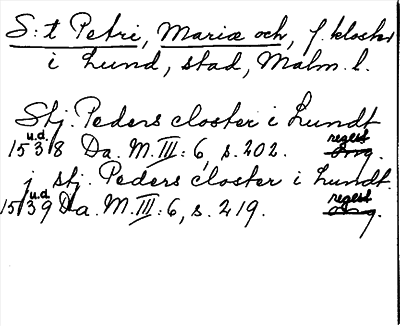 S:t Petri, Mariæ och, f. kloster
i Lund, stad, Malm. l.
Stj. Peders closter i Lundt
u.d. regest
1538 Da. M. III: 6, s. 202. Orig.
j stj. Peders closter i Lundt.
u.d. regest
1539 Da. M. III: 6, s. 219. Orig.